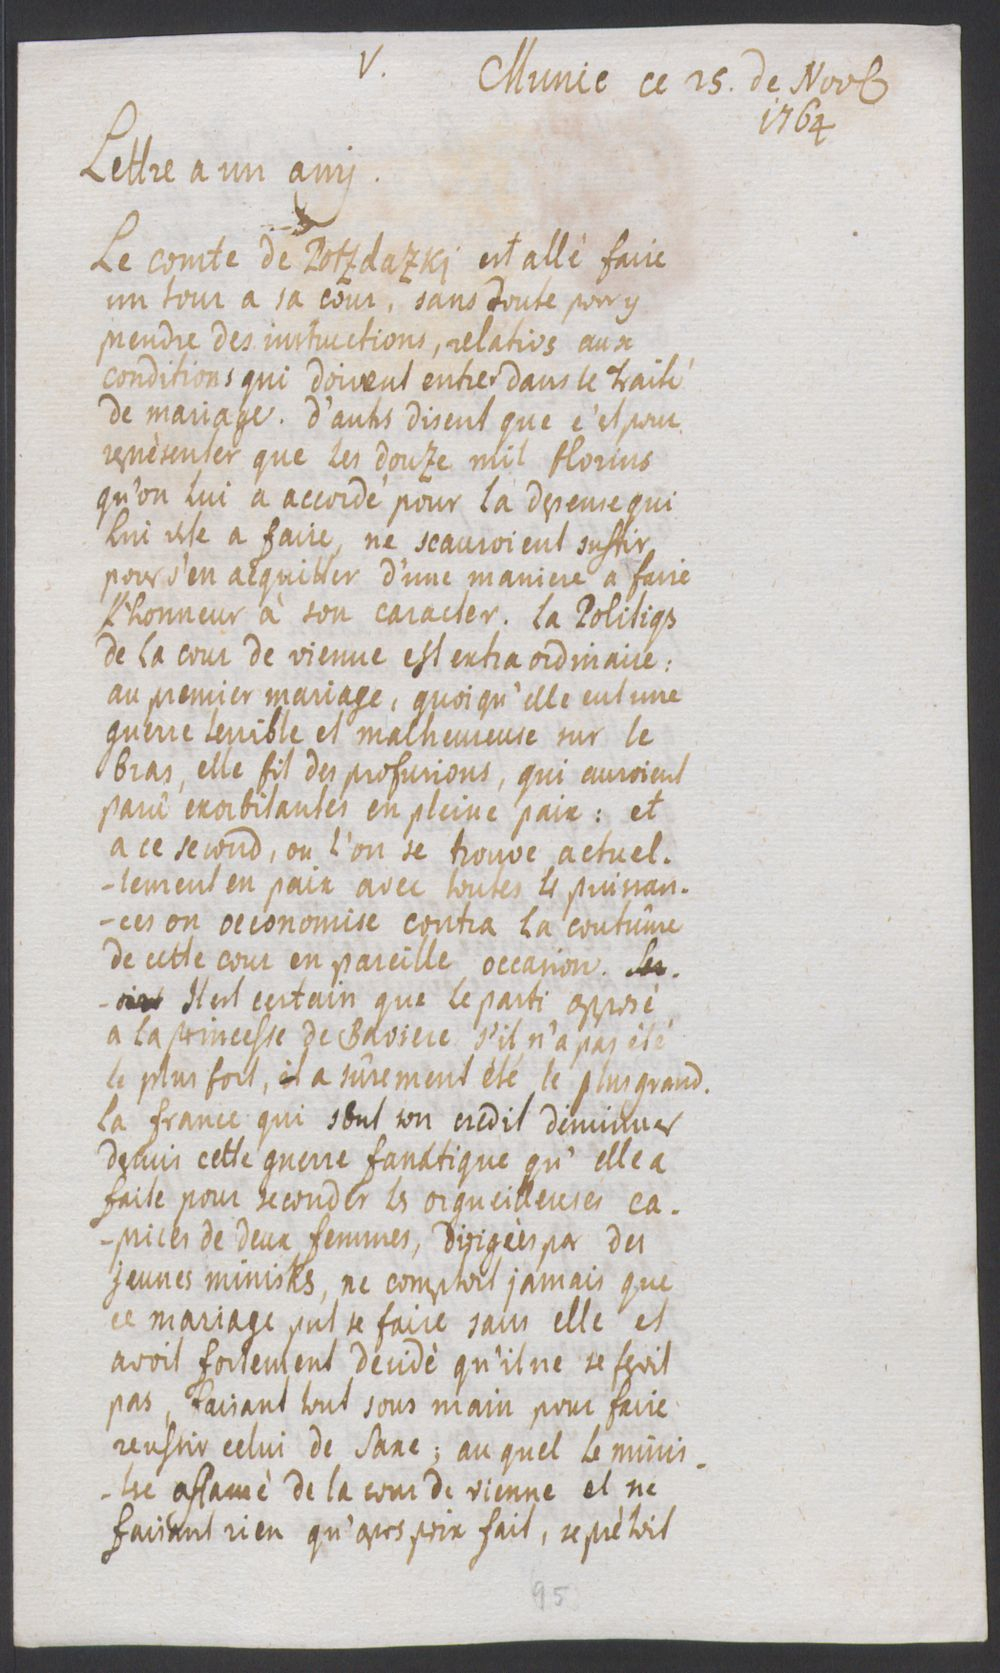 V.
Munic ce 25. de Novb
1764
Lettre a un amj.
Le comte de Potzdazkj est allé faire
un tour a sa cour, sans doute pour y
prendre des instructions, relatives aux
conditions qui doivent entrer dans le traité
de mariage. d'autrs disent que c'est pour
reprèsenter que les douze mil florins
qu'on lui a accordé pour la depense qui
lui reste a faire, ne scauroient suffir
pour s'en acquitter d'une maniere a faire
l'honneur à son caracter. la Politiqs
de la cour de vienne est extraordinaire:
au premier mariage, quoiqu'elle eut une
guerre terrible et malheureuse sur le
bras, elle fit des profusions, qui auroient
parû exorbitantes en pleine paix: et
a ce second, ou l'on se trouve actuel-
-lement en paix avec toutes ls puissan-
-ces on oeconomise contra la coutûme
de cette cour en pareille occasion.
Il est certain que le parti opposé
a la princesse de Baviere s'il n'a pas été
le plus fort, il a sûrement été le plus grand.
la france qui sent son credit diminuer
depuis cette guerre fanatique qu'elle a
faite pour seconder ls orgueilleuses ca-
-prices de deux femmes, dirigèes par des
jeunes ministrs, ne comptoit jamais que
ce mariage put se faire sans elle et
avoit fortement décidé qu'il ne se feroit
pas, faisant tout sous main pour faire
reussir celui de Saxe; au quel le minis-
-tre affamé de la cour de vienne et ne
faisant rien qu'apres prix fait, se prètoit
95